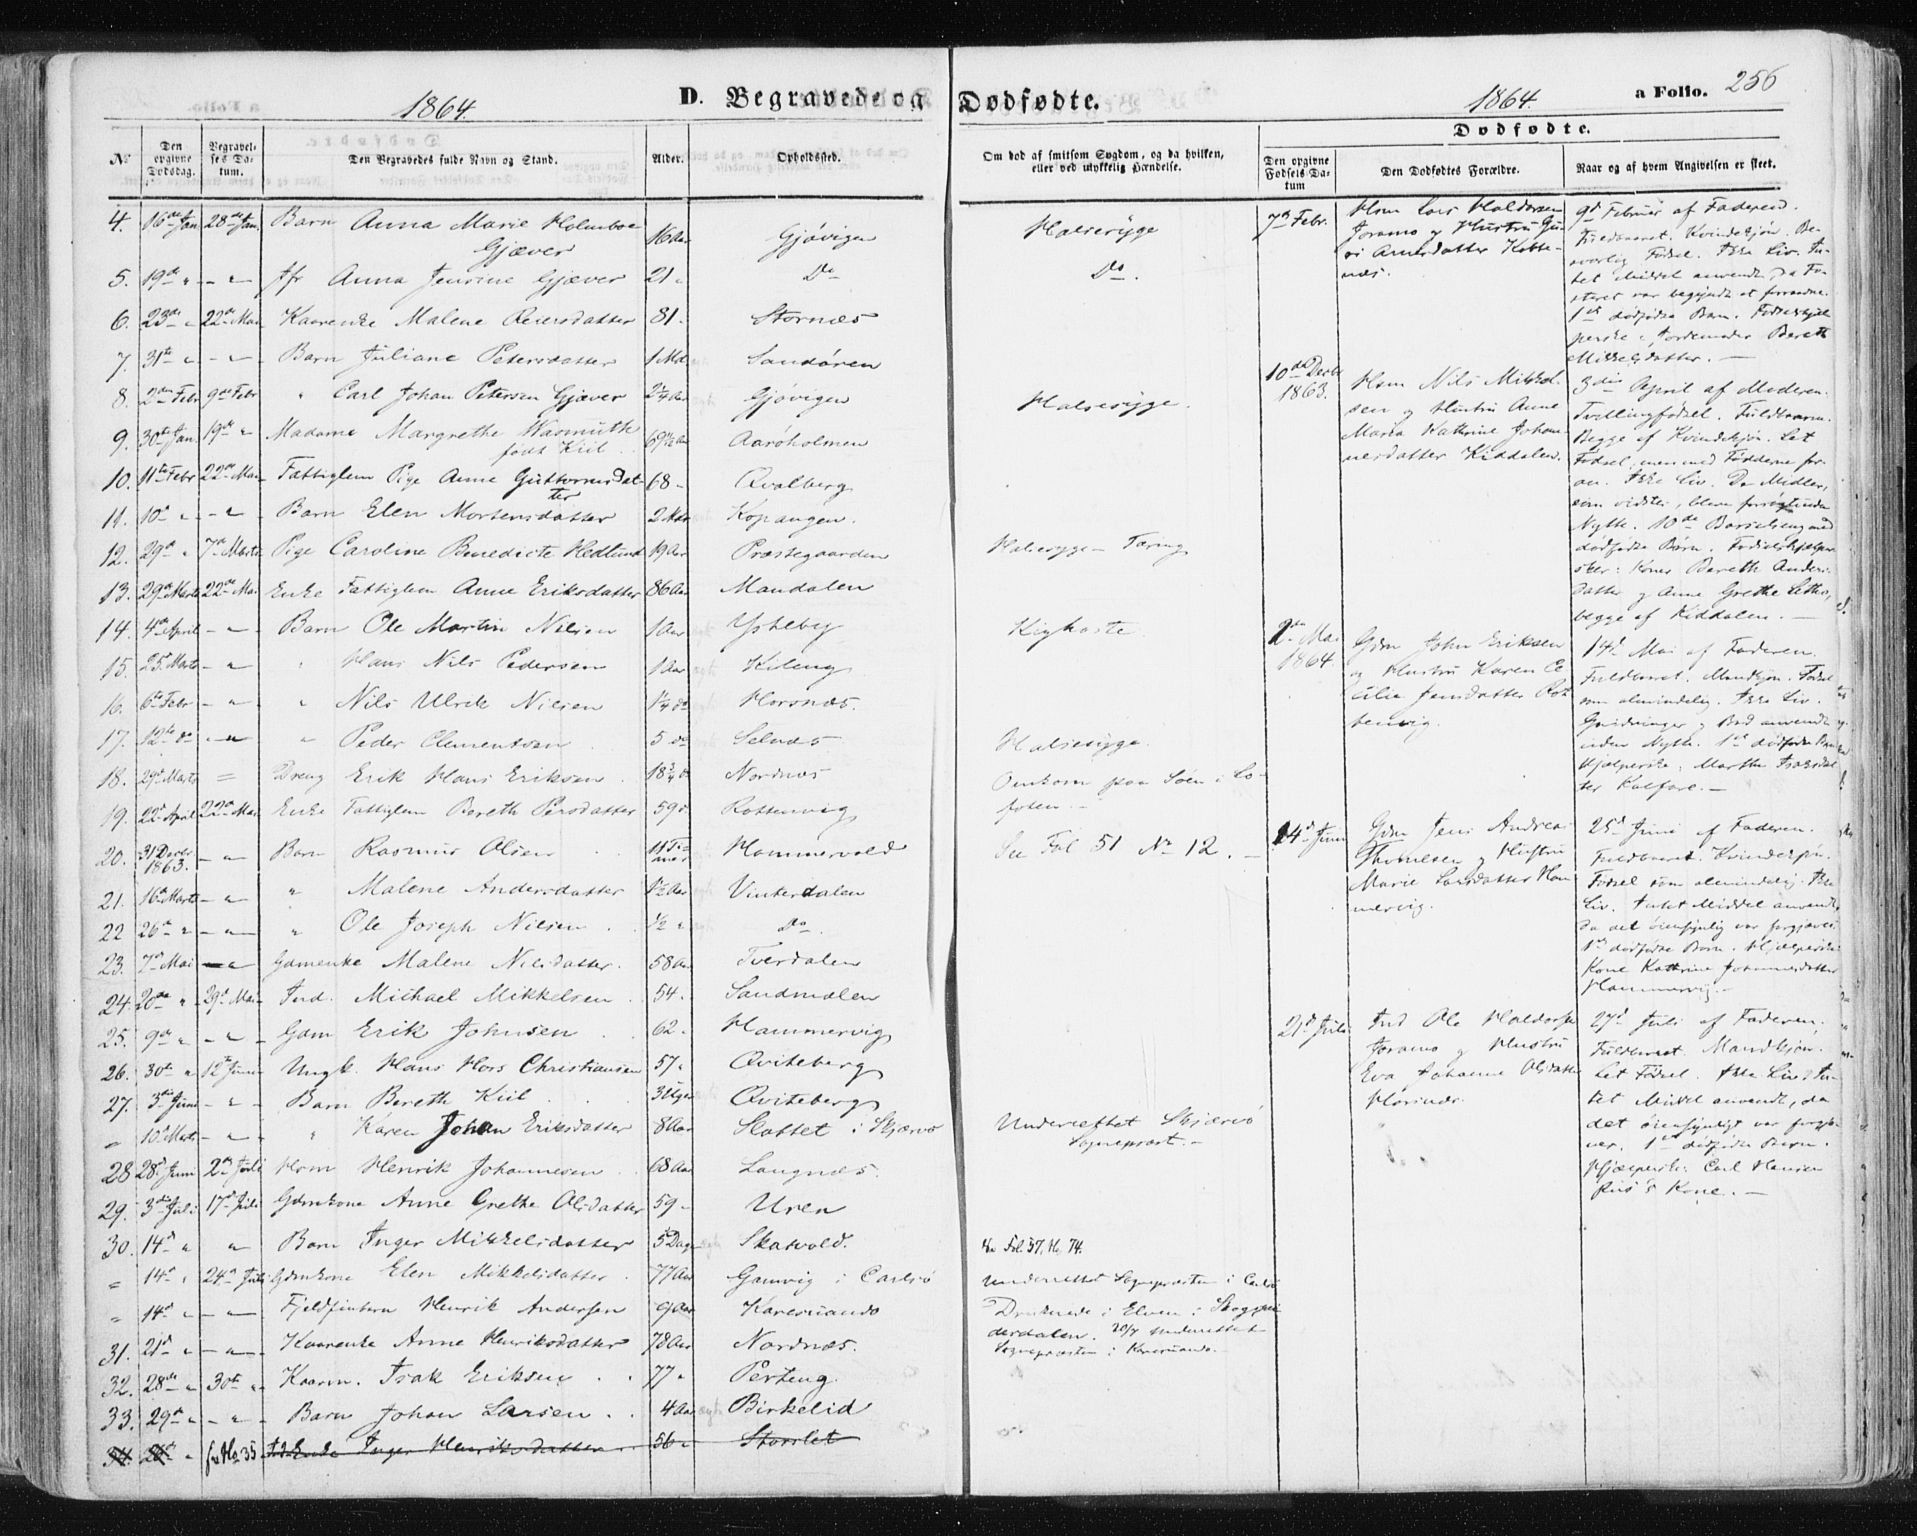 1864.
D. Begravede og Dødfødte.
1864.
a Folio. 256
Dødfødte.
No
Den opgivne Dødsdag.
Begravelses Datum.
Den Begravedes fulde Navn og Stand.
Alder.
Opholdssted.
Om død af smitsom Sygdom, og da hvilken, eller ved ulykkelig Hændelse.
Den opgivne Fødsels Datum
Den Dødfødtes Forældre.
Naar og af hvem Angivelsen er skeet.
4. 16de Jan 28de Jan. Barn Anna Marie Holmboe Gjæver 16 Aar Gjøvigen Halsesyge
5. 19de " - " - Jfr Anna Jensine Gjæver 21 " Do Do.
6. 23de " 22de Mai Kaarenke Malene Reiersdatter 81. Stornæs
7. 31te " - " - Barn Juliane Petersdatter 1 Md. Sandøren
8. 2den Febr 9de Febr " Carl Johan Petersen Gjæver 2¼ Aar Gjøvigen Halsesyge.
9. 30te Jan. 19de " Madame Margrethe Wasmuth født Kiil 69½ Aar Aarøholmen
10. 11te Febr 22de Mai Fattiglem Pige Anne Guttormsdatter 68 - Qvalberg
11. 10de " - " - Barn Elen Mortensdatter 2 Mdr Kopangen.
12. 29de " 7de Marts Pige Caroline Benedicte Hedlund 19 Aar Præstegaarden Halsesyge - Tæring
13. 29de Marts 22de Mai Enke Fattiglem Anne Eriksdatter 86 Aar Mandalen
14. 4de April - " - Barn Ole Martin Nilsen 1 Aar Ysteby Kighoste.
15. 25de Marts - " " Hans Nils Pedersen 1 Aar Kileng
16. 6te Febr - " " Nils Ulrik Nilsen 1¼ do Horsnæs.
17. 12te do - " " Peder Clementsen 5 do Selnæs Halsesyge.
18. 29de Marts = Dreng Erik Hans Eriksen 18¾ do Nordnæs Omkom paa Søen i Lofoten. -
19. 22de April 22de Mai Enke Fattiglem Bereth Persdatter 59 do Rottenvig
20. 31 Decbr 1863. - " Barn Rasmus Olsen 11 Timer Hammervold See Fol 51 No 12. -
21. 16de Marts - " - " Malene Andersdatter 1½ Aar Vinterdalen
22 26de " - " - " Ole Joseph Nilsen ½ " Do.
23. 7de Mai - " Gamenke Malene Nilsdatter. 58 Aar Tverdalen
24. 20de " 29de Mai Ind. Michael Mikkelsen 54. Sandmælen
25. 9de " - " - Gdm Erik Johnsen 62. Hammervig
26. 30te " 12te Juni Ungk. Hans Hors Christiansen 57. Qviteberg
27. 3die Juni - " - Barn Bereth Kiil 3 Uger Qviteberg
" 10de Marts - " - " Karen Johan Eriksdatter 8 Aar Slottet i Skjærvø Underrettet Skjærvø Sognepræst. -
28 28de Juni 2den Juli Hsm Henrik Johannesen 68 Aar Langnæs.
29. 3die Juli 17de Juli Gdmkone Anne Grethe Olsdatter 59 - Uren
30. 14de " " Barn Inger Mikkelsdatter 5 Dage Skatvold. Fol 57, No. 74.
" 14de " 24de Juli Gdmkone Elen Mikkelsdatter. 77 Aar Gamvig i Carlsø Underrettet Sognepræsten i Carlsø
" 14de " - " - Fjeldfinbarn Henrik Andersen 9 Aar Karesuando Druknede i Elven i Skogpederdalen. 20/7 underrettet Sognepræsten i Karesuando.
31. 21de " - " - Kaarenke Anne Henriksdatter 78 Aar Nordnæs.
32. 28de " 30te " Kaarm. Isak Eriksen 77 " Perteng.
33. 29de " - " - Barn Johan Larsen 4 Aar Birkelid
34. 28de " No 35 Enke Inger Henriksdatter 56 " Storslet
7de Febr. Hsm Lars Haldorsen Joramo og Hustru Guri Arnesdatter Kobbenæs.
9de Februar af Faderen. Fuldbaaret. Kvindekjøn. Besværlig Fødsel. Ikke Liv. Intet Middel anvendt, da Fosteret var begyndt at forraadne. 1ste dødfødte Barn. Fødselshjælperske, Jordemoder Bereth Mikkelsdatter. -
10de Decbr 1863. Hsm Nils Mikkelsen og Hustru Anne Maria Kathrine Johannesdatter Kiddalen.
3die April af Moderen. Tvillingfødsel. Fuldbaarne. Begge af Kvindekjøn. Let Fødsel, men med Fødderne foran. Ikke Liv. De Midler, som vidstes, bleve forsøgt uden Nytte. 10de Barselseng med dødfødte Børn. Fødselshjælpersker: Koner Bereth Andersdatter og Anne Grethe begge af Kiddalen. -
2den Mai 1864. Gdm John Eriksen og Hustru Karen Cecilie Jensdatter Rottenvig.
14de Mai af Faderen. Fuldbaaret. Mandkjøn. Fødsel som almindelig. Ikke Liv. Gnidninger og Bad anvendt uden Nytte. 1ste dødfødte Barn Hjælperske, Marthe Isaksdatter Kalfare. -
14de Juni Gdm Jens Andreas Thomesen og Hustru Marie Larsdatter Hammervig.
25de Juni af Faderen. Fuldbaaret. Kvindekjøn. Fødsel som almindelig. Ikke Liv. Intet Middel anvendt, da det øiensynlig var forgjæves. 1ste dødfødte Barn. Hjælperske: Kone Kathrine Johannesdatter Hammervig. -
21de Juli Ind Ole Haldorsen Joramo og Hustru Eva Johanne Olsdatter Horsnæs.
27de Juli af Faderen. Fuldbaaret. Mandkjøn. Let Fødsel. Ikke Liv. Intet Middel anvendt, da det øiensynligt var forgjæves. 1ste dødfødte Barn. Hjælperske: Carl Hansen Riis's Kone. -